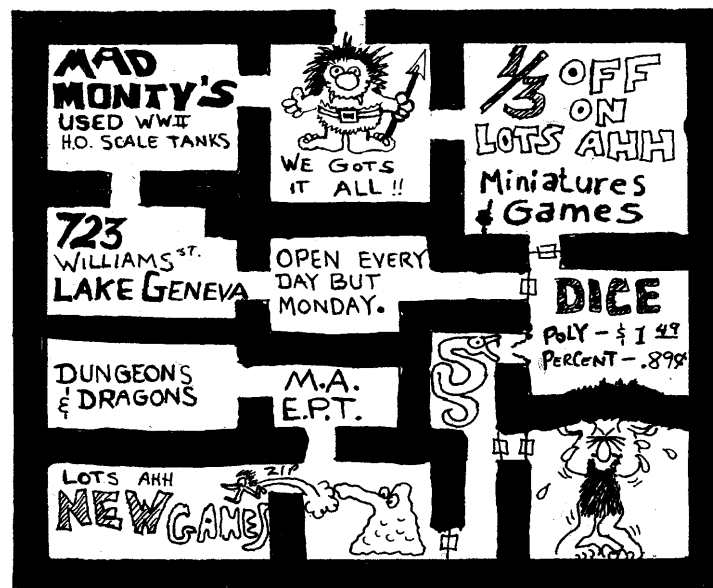 MAD
MONTY'S
USED WWII
H.O. SCALE TANKS
WE GOTS
IT ALL!!
1/3 OFF
ON
LOTS AHH
Miniatures
& Games
723
WILLIAMS ST.
LAKE GENEVA
OPEN EVERY
DAY BUT
MONDAY.
DICE
POLY - $ 1 49
PERCENT - .89¢
DUNGEONS
& DRAGONS
M.A.
E.P.T.
LOTS AHH
NEW GAMES
ZIP